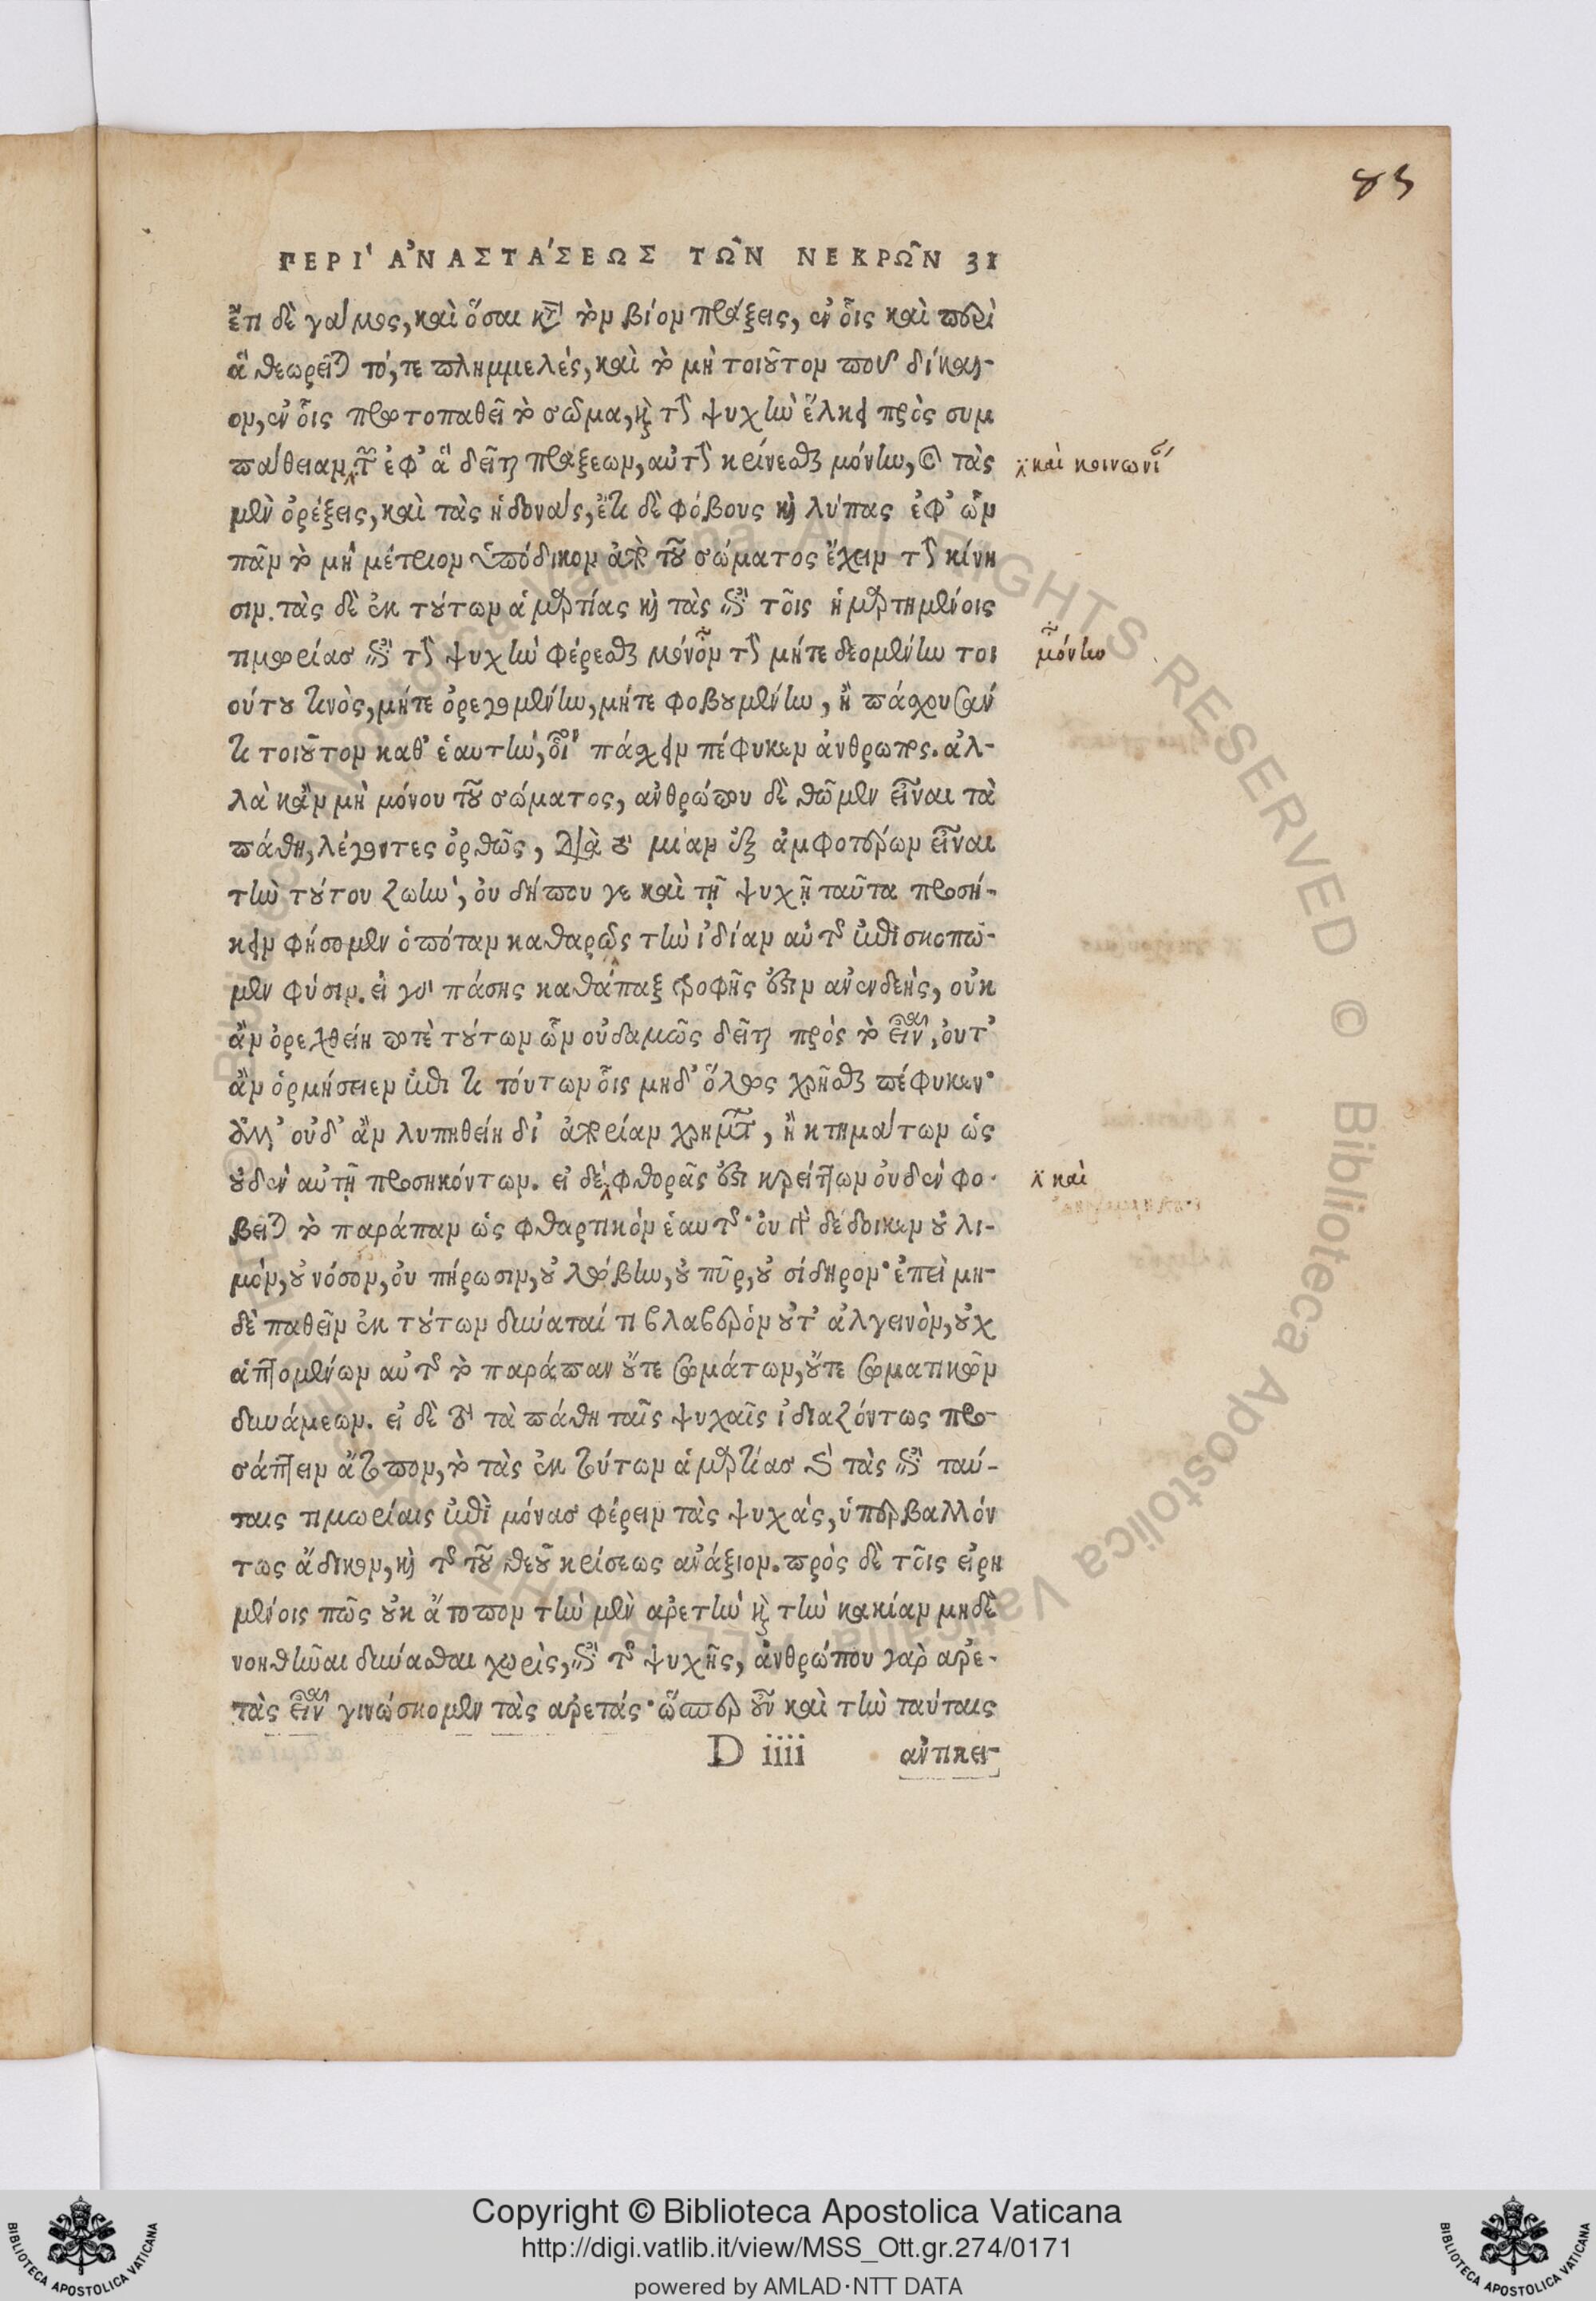 85
ΠΕΡΙ ἈΝΑΣΤΆΣΕΩΣ ΤΩ͂Ν ΝΕΚΡΩ͂Ν 31
ἔτι δὲ γάμος, καὶ ὅσαι κατὰ τὸν βίον πράξεις, ἐν οἷς καὶ περὶ
ἃ θεωρεῖται τό, τε πλημμελές, καὶ τὸ μὴ τοιοῦτον ποῦ δίκαι-
ον, ἐν οἷς πρωτοπαθεῖ τὸ σῶμα, καὶ τὴν ψυχὴν ἕλκει πρὸς συμ
πάθειαν τῶν ἐφ' ἃ δεῖται πράξεων, αὐτὴν κρίνεσθαι μόνην, καὶ τὰς
λ καὶ κοινωνί
μὲν ὀρέξεις, καὶ τὰς ἡδονάς, ἔτι δὲ φόβους καὶ λύπας ἐφ' ὧν
πᾶν τὸ μὴ μέτριον ὑπόδικον ἀπὸ τοῦ σώματος ἔχειν τὴν κίνη
σιν. τὰς δὲ ἐκ τούτων ἁμαρτίας καὶ τὰς ἐπὶ τοῖς ἡμαρτημένοις
τιμωρίας ἐπὶ τὴν ψυχὴν φέρεσθαι μόνον τὴν μήτε δεομένην τοι
μόνην
ούτου τινὸς, μήτε ὀρεγομένην, μήτε φοβουμένην, ἢ πάσχουσαν
τι τοιοῦτον καθ' ἑαυτὴν, οἷον πάσχειν πέφυκεν ἄνθρωπος. ἀλ-
λὰ κἂν μὴ μόνου τοῦ σώματος, ἀνθρώπου δὲ θῶμεν εἶναι τὰ
πάθη, λέγοντες ὀρθῶς, διὰ τὸ μίαν ἐξ ἀμφοτέρων εἶναι
τὴν τούτου ζωήν, οὐ δήπου γε καὶ τῇ ψυχῇ ταῦτα προσή-
κειν φήσομεν ὁπόταν καθαρῶς τὴν ἰδίαν αὐτῆς ἐπισκοπῶ-
μεν φύσιν. εἰ γὰρ πάσης καθάπαξ τροφῆς ἐστιν ἀνενδεής, οὐκ
ἂν ὀρεχθείη ποτὲ τούτων ὧν οὐδαμῶς δεῖται πρὸς τὸ εἶναι, οὐτ'
ἂν ὁρμήσειεν ἐπί τι τούτων οἷς μηδ' ὅλως χρῆσθαι πέφυκεν·
ἀλλ' οὐδ' ἂν λυπηθείη δι' ἀπορίαν χρημάτων, ἢ κτημάτων ὡς
οὐδὲν αὐτῇ προσηκόντων. εἰ δὲ φθορᾶς ἐστι κρείττων οὐδὲν φο-
λ καὶ
βεῖται τὸ παράπαν ὡς φθαρτικὸν ἑαυτῆς· οὐ γὰρ δέδοικεν οὐ λι-
μόν, οὐ νόσον, οὐ πήρωσιν, οὐ λώβην, οὐ πῦρ, οὐ σίδηρον· ἐπεὶ μη-
δὲ παθεῖν ἐκ τούτων δύναταί τι βλαβερὸν οὐτ' ἀλγεινὸν, οὐχ
ἁπτομένων αὐτῆς τὸ παράπαν οὔτε σωμάτων, οὔτε σωματικῶν
δυνάμεων. εἰ δὲ τὸ τὰ πάθη ταῖς ψυχαῖς ἰδιαζόντως προ-
σάπτειν ἄτοπον, τὸ τὰς ἐκ τούτων ἁμαρτίας καὶ τὰς ἐπὶ ταύ-
ταις τιμωρίαις ἐπὶ μόνας φέρειν τὰς ψυχάς, ὑπερβαλλόν
τως ἄδικον, καὶ τῆς τοῦ θεοῦ κρίσεως ἀνάξιον. πρὸς δὲ τοῖς εἰρη
μένοις πῶς οὐκ ἄτοπον τὴν μὲν ἀρετὴν καὶ τὴν κακίαν μηδὲ
νοηθῆναι δύνασθαι χωρὶς, ἐπὶ τῆς ψυχῆς, ἀνθρώπου γὰρ ἀρε-
τὰς εἶναι γινώσκομεν τὰς ἀρετάς· ὥσπερ οὖν καὶ τὴν ταύταις
D iiii ἀντικει-
Copyright © Biblioteca Apostolica Vaticana
http://digi.vatlib.it/view/MSS_Ott.gr.274/0171
powered by AMLAD·NTT DATA
BIBLIOTECA APOSTOLICA VATICANA
BIBLIOTECA APOSTOLICA VATICANA